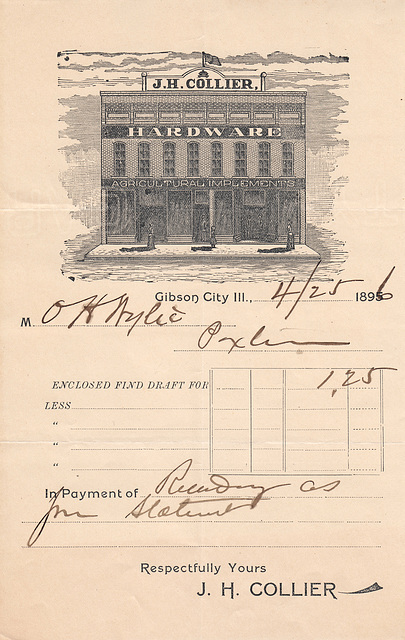 J.H. COLLIER,
HARDWARE
AGRICULTURAL IMPLEMENTS
Gibson City Ill., 4/25 1896
M O H Wylie
Paxton
ENCLOSED FIND DRAFT FOR 1,25
LESS
"
"
"
In Payment of as
Statement
Respectfully Yours
J. H. COLLIER